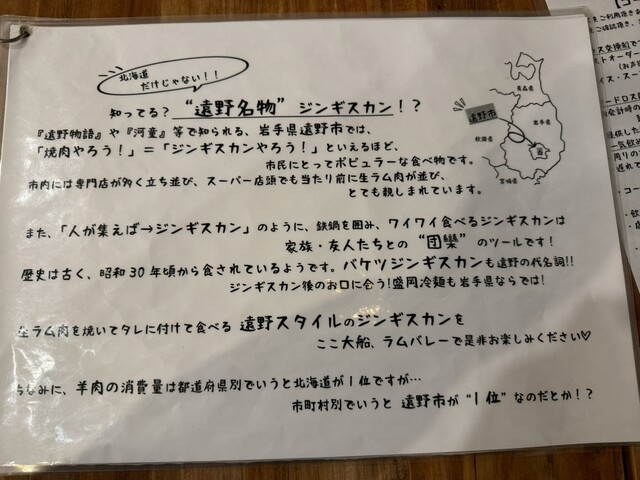 北海道
だけじゃない！！
知ってる？ “遠野名物” ジンギスカン！？
『遠野物語』や『河童』等で知られる、岩手県遠野市では、
「焼肉やろう！」＝「ジンギスカンやろう！」といえるほど、
市民にとってポピュラーな食べ物です。
市内には専門店が多く立ち並び、スーパー店頭でも当たり前に生ラム肉が並び、
とても親しまれています。
また、「人が集えば→ジンギスカン」のように、鉄鍋を囲み、ワイワイ食べるジンギスカンは
家族・友人たちとの “団欒” のツールです！
歴史は古く、昭和30年頃から食されているようです。バケツジンギスカンも遠野の代名詞!!
ジンギスカン後のお口に合う！盛岡冷麺も岩手県ならでは！
生ラム肉を焼いてタレに付けて食べる 遠野スタイルのジンギスカンを
ここ大船、ラムバレーで是非お楽しみください♡
ちなみに、羊肉の消費量は都道府県別でいうと北海道が１位ですが…
市町村別でいうと 遠野市が “１位” なのだとか！？
青森県
遠野市
岩手県
秋田県
宮城県